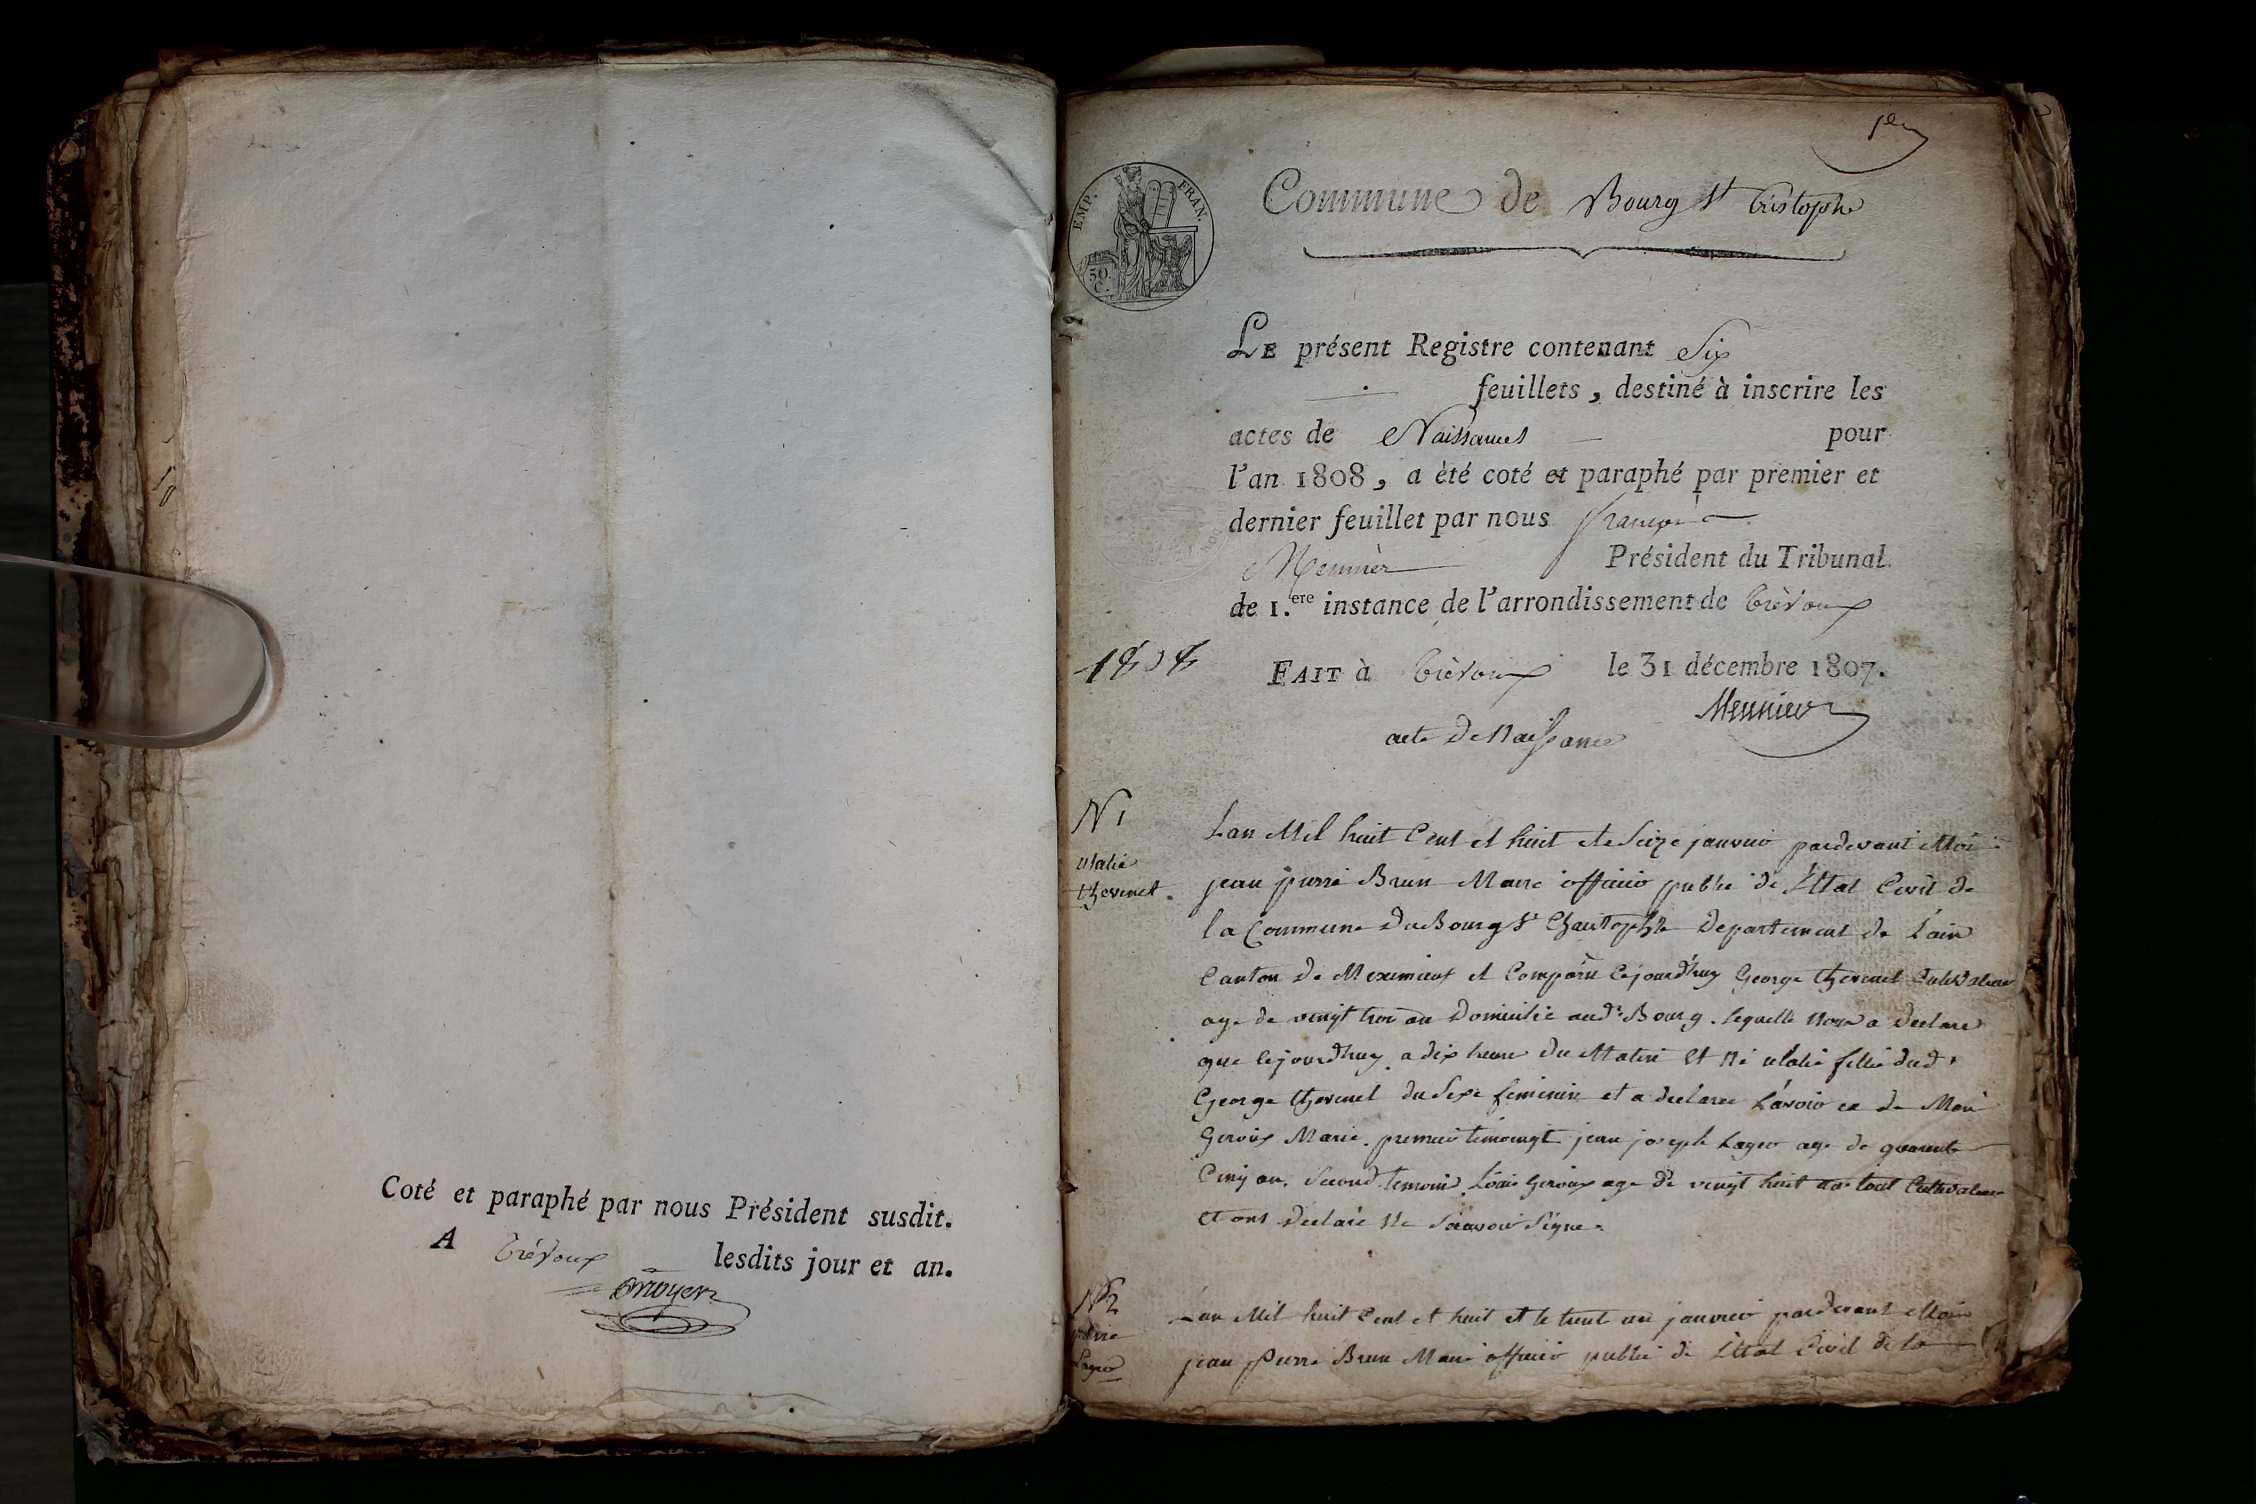 Coté et paraphé par nous Président susdit.
A Trévoux lesdits jour et an.
1er
EMP. FRAN.
50 C.
Commune de Bourg St Cristophe
LE présent Registre contenant Six
feuillets, destiné à inscrire les
actes de Naissances pour
l'an 1808, a été coté et paraphé par premier et
dernier feuillet par nous françois
Meunier Président du Tribunal
de 1.ere instance de l'arrondissement de Trévoux
1808
FAIT à Trévoux le 31 décembre 1807.
Meunier
acte De Naissance
N 1
ulalie
thevenet.
Lan Mil huit Cent et huit et le Seize janvier pardevant Moi
jean pierre Brun Maire officier public de L'Etat Civil de
la Commune Du Bourg St Christophe Departement de L'ain
Canton de Meximieux et Comparu Cejourdhuy George thevenet Cultivateur
age de vingt troi an Domicilié aud. Bourg. lequelle Nous a Declare
que Cejourdhuy a dix heure du Matin Et Né ulalie fille dud.
George thevenet du Sexe feminin et a declaree L'avoir eu de
Giroux Marie. premier temoingt jean joseph Lager age de quarente
Cinq an. Second temoin Louis Giroux age de vingt huit an tout Cultivateur
et ont Declaré Ne Scavoir Signe.
N 2
Lager
Lan Mil huit Cent et huit et le trent un janvier pardevant Moi
jean Pierre Brun Maire officier public de L'Etat Civil de la